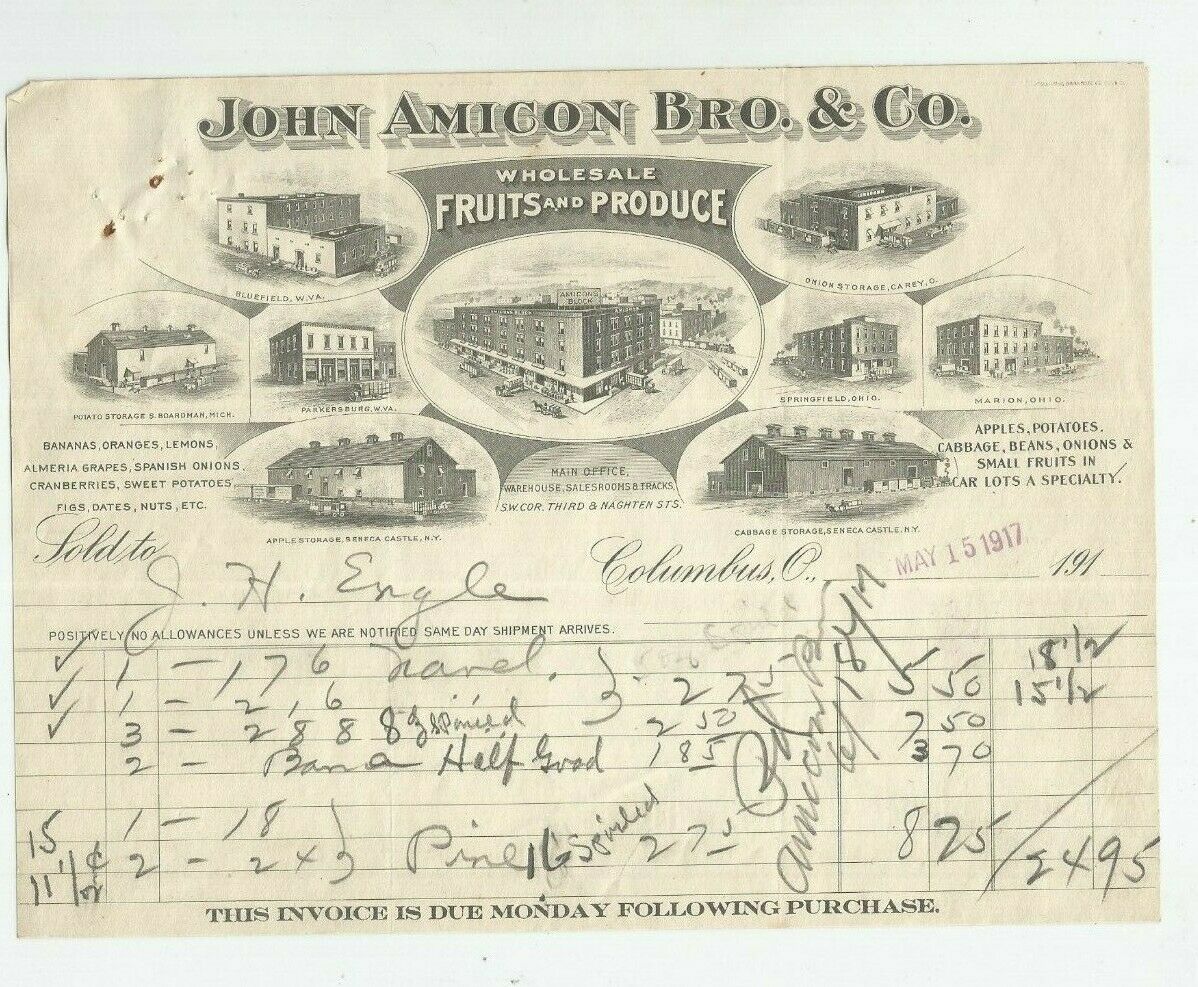 JOHN AMICON BRO. & CO.
WHOLESALE
FRUITS AND PRODUCE
BLUEFIELD, W.VA.
ONION STORAGE, CAREY, O.
AMICONS BLOCK
POTATO STORAGE S. BOARDMAN, MICH.
PARKERSBURG, W.VA.
SPRINGFIELD, OHIO.
MARION, OHIO.
BANANAS, ORANGES, LEMONS,
ALMERIA GRAPES, SPANISH ONIONS,
CRANBERRIES, SWEET POTATOES,
FIGS, DATES, NUTS, ETC.
APPLE STORAGE, SENECA CASTLE, N.Y.
MAIN OFFICE,
WAREHOUSE, SALESROOMS & TRACKS,
S.W. COR. THIRD & NAGHTEN STS.
CABBAGE STORAGE, SENECA CASTLE, N.Y.
APPLES, POTATOES,
CABBAGE, BEANS, ONIONS &
SMALL FRUITS IN
CAR LOTS A SPECIALTY.
Sold to J. H. Engle
Columbus, O., MAY 15 1917 191
POSITIVELY NO ALLOWANCES UNLESS WE ARE NOTIFIED SAME DAY SHIPMENT ARRIVES.
1 - 176 navel 5 50 18 1/2
1 - 216 15 1/2
3 - 288 2 50 7 50
2 - Bana Half Good 1 85 3 70
15 1 - 18
11 1/2 ¢ 2 - 24 Pine 16 Spoiled 2 75 8 25 24 95
THIS INVOICE IS DUE MONDAY FOLLOWING PURCHASE.